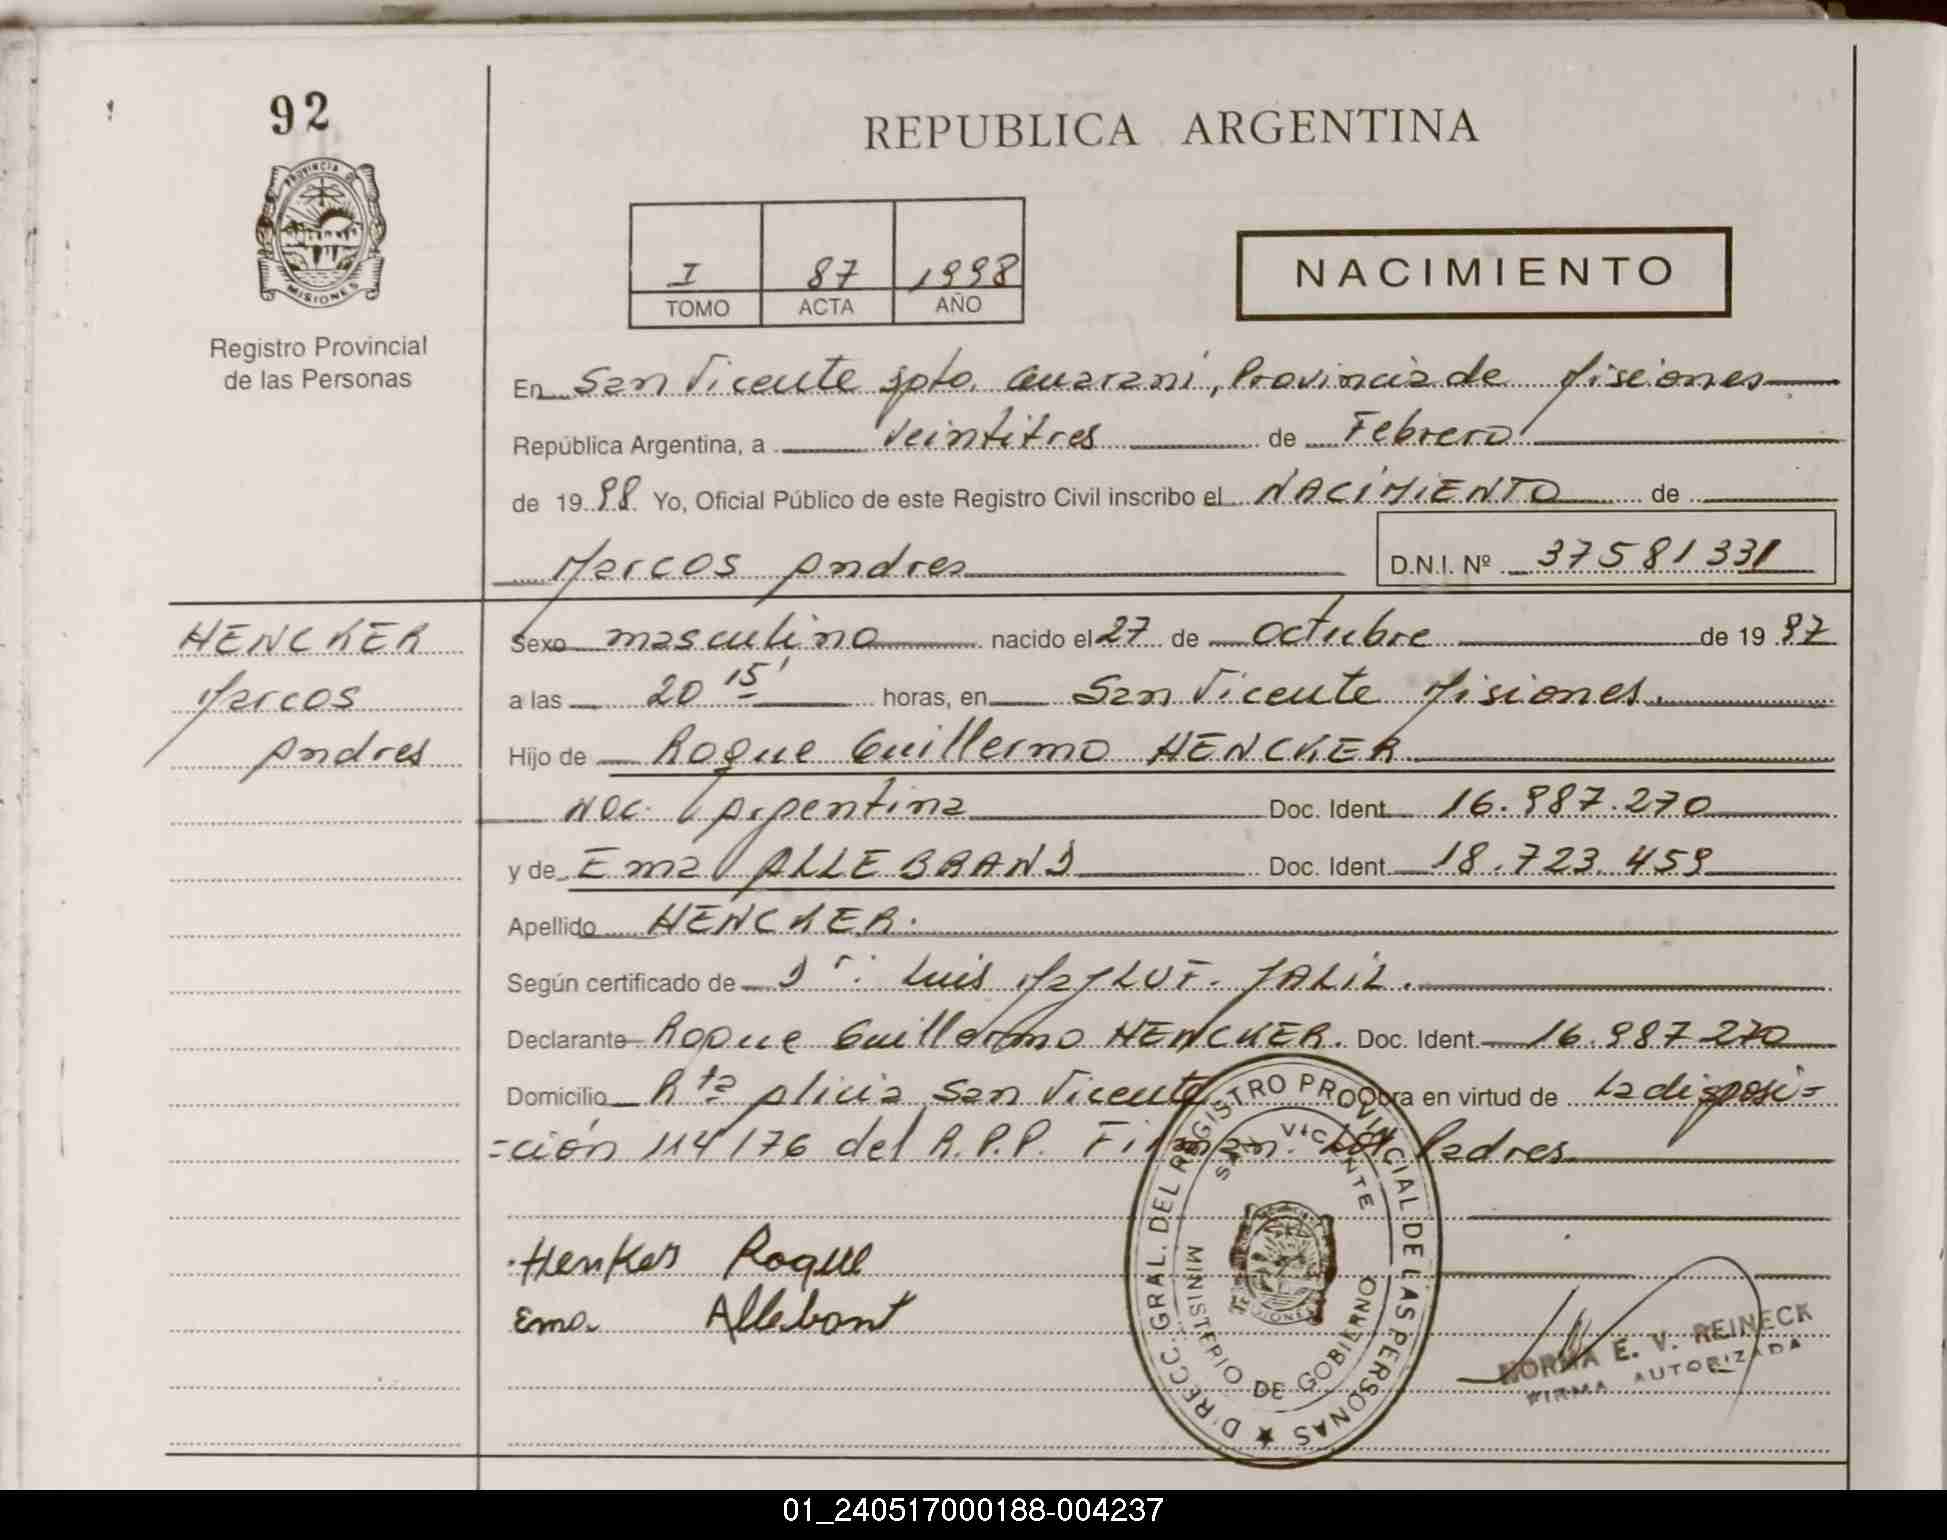 92
REPUBLICA ARGENTINA
PROVINCIA DE
MISIONES
Registro Provincial
de las Personas
I 87 1998
TOMO ACTA AÑO
NACIMIENTO
En San Vicente Dpto. Guarani, Provincia de Misiones
República Argentina, a veintitres de Febrero
de 1998 Yo, Oficial Público de este Registro Civil inscribo el NACIMIENTO de
Marcos Andres D.N.I. Nº 37581331
HENCKER
Marcos
Andres
Sexo masculino nacido el 27 de octubre de 1997
a las 20 15' horas, en San Vicente Misiones.
Hijo de Roque Guillermo HENCKER
Nac. Argentina Doc. Ident. 16.987.270
y de Ema ALLEBRAND Doc. Ident. 18.723.459
Apellido HENCKER.
Según certificado de Dr. Luis JALIL.
Declarante Roque Guillermo HENCKER. Doc. Ident. 16.987.270
Domicilio Rta Alicia San Vicente Obra en virtud de La disposi=
=ción 114/76 del R.P.P. Firman. Los Padres.
Roque
Ema
DIRECC. GRAL. DEL REGISTRO PROVINCIAL DE LAS PERSONAS
SAN VICENTE
MINISTERIO DE GOBIERNO
NORMA E. V. REINECK
FIRMA AUTORIZADA
01_240517000188-004237